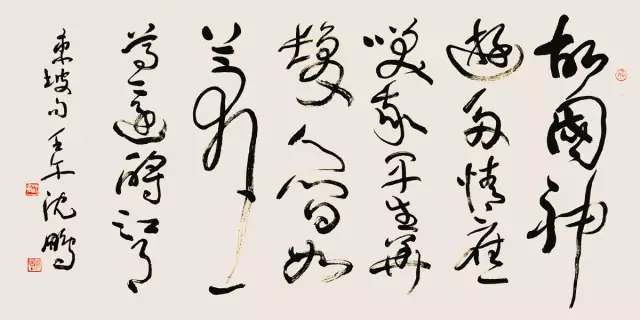 故國神
遊多情應
笑我早生華
髮人間如
夢一
尊還酹江月
東坡句壬午沈鵬